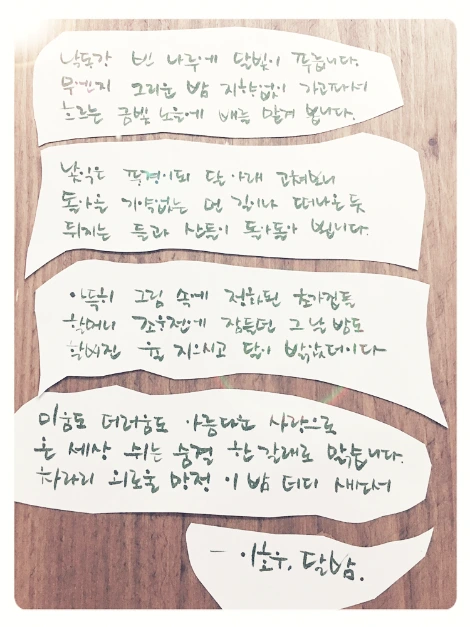 낙동강 빈 나루에 달빛이 푸릅니다.
무엔지 그리운 밤 지향없이 가고파서
흐르는 금빛 노을에 배를 맡겨 봅니다.
낯익은 풍경이되 달 아래 고쳐보니
돌아올 기약없는 먼 길이나 떠나온 듯
뒤지는 들과 산들이 돌아돌아 뵙니다.
아득히 그림 속에 정화된 초가집들
할머니 조웅전에 잠들던 그날 밤도
할버진 율 지으시고 달이 밝았더이다
미움도 더러움도 아름다운 사랑으로
온 세상 쉬는 숨결 한 갈래로 맑습니다.
차라리 외로울망정 이 밤 더디 새다서
- 이호우, 달밤.